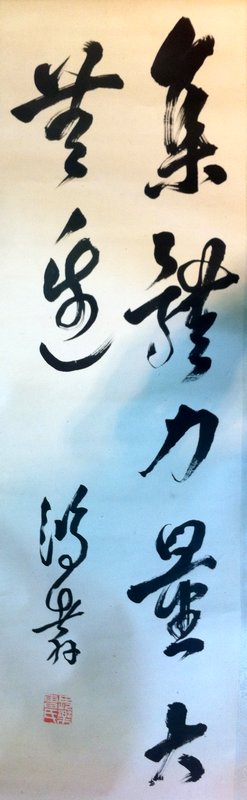 集體力量大
無邊